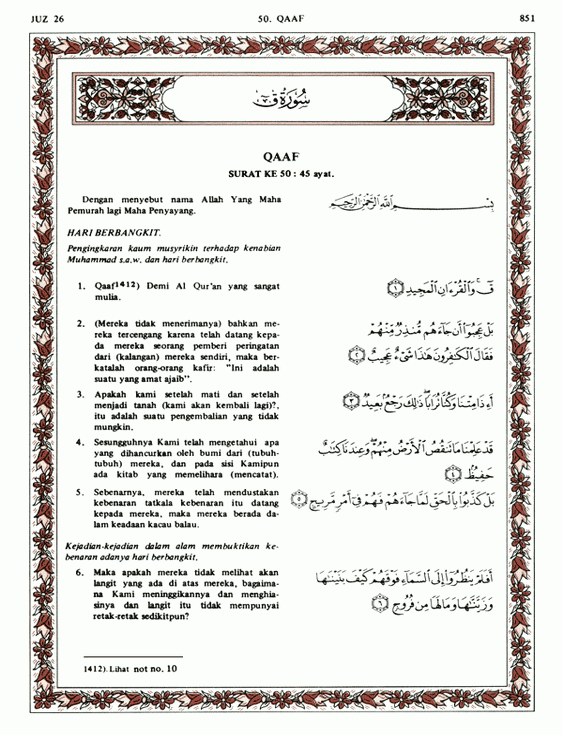 JUZ 26 50. QAAF 851
سُورَةُ ق
QAAF
SURAT KE 50 : 45 ayat.
Dengan menyebut nama Allah Yang Maha
Pemurah lagi Maha Penyayang.
بِسْمِ ٱللَّهِ ٱلرَّحْمَٰنِ ٱلرَّحِيمِ
HARI BERBANGKIT.
Pengingkaran kaum musyrikin terhadap kenabian
Muhammad s.a.w. dan hari berbangkit.
1. Qaaf1412) Demi Al Qur'an yang sangat
mulia.
قٓ ۚ وَٱلْقُرْءَانِ ٱلْمَجِيدِ ١
2. (Mereka tidak menerimanya) bahkan me-
reka tercengang karena telah datang kepa-
da mereka seorang pemberi peringatan
dari (kalangan) mereka sendiri, maka ber-
katalah orang-orang kafir: "Ini adalah
suatu yang amat ajaib".
بَلْ عَجِبُوٓا۟ أَن جَآءَهُم مُّنذِرٌ مِّنْهُمْ
فَقَالَ ٱلْكَٰفِرُونَ هَٰذَا شَىْءٌ عَجِيبٌ ٢
3. Apakah kami setelah mati dan setelah
menjadi tanah (kami akan kembali lagi)?,
itu adalah suatu pengembalian yang tidak
mungkin.
أَءِذَا مِتْنَا وَكُنَّا تُرَابًا ذَٰلِكَ رَجْعٌۢ بَعِيدٌ ٣
4. Sesungguhnya Kami telah mengetahui apa
yang dihancurkan oleh bumi dari (tubuh-
tubuh) mereka, dan pada sisi Kamipun
ada kitab yang memelihara (mencatat).
قَدْ عَلِمْنَا مَا تَنقُصُ ٱلْأَرْضُ مِنْهُمْ وَعِندَنَا كِتَٰبٌ
حَفِيظٌۢ ٤
5. Sebenarnya, mereka telah mendustakan
kebenaran tatkala kebenaran itu datang
kepada mereka, maka mereka berada da-
lam keadaan kacau balau.
بَلْ كَذَّبُوا۟ بِٱلْحَقِّ لَمَّا جَآءَهُمْ فَهُمْ فِىٓ أَمْرٍ مَّرِيجٍ ٥
Kejadian-kejadian dalam alam membuktikan ke-
benaran adanya hari berbangkit.
6. Maka apakah mereka tidak melihat akan
langit yang ada di atas mereka, bagaima-
na Kami meninggikannya dan menghia-
sinya dan langit itu tidak mempunyai
retak-retak sedikitpun?
أَفَلَمْ يَنظُرُوٓا۟ إِلَى ٱلسَّمَآءِ فَوْقَهُمْ كَيْفَ بَنَيْنَٰهَا
وَزَيَّنَّٰهَا وَمَا لَهَا مِن فُرُوجٍ ٦
1412). Lihat not no. 10